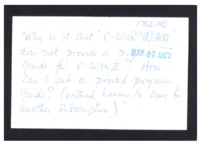 Why is it that "C-SPAN"
does not provide a
Guide for C-SPAN II? How
Can I get a printed program
Guide? (without having to
another subscription)